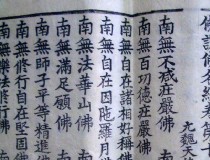 佛說佛名經卷第十
元魏天
南無不減莊嚴佛
南無百功德莊嚴佛
南無自在諸相好稱佛
南無自在因陀羅月佛
南無法華山佛
南無滿足願佛
南無師子平等精進佛
南無修行自在堅固佛
南無樂法修行佛